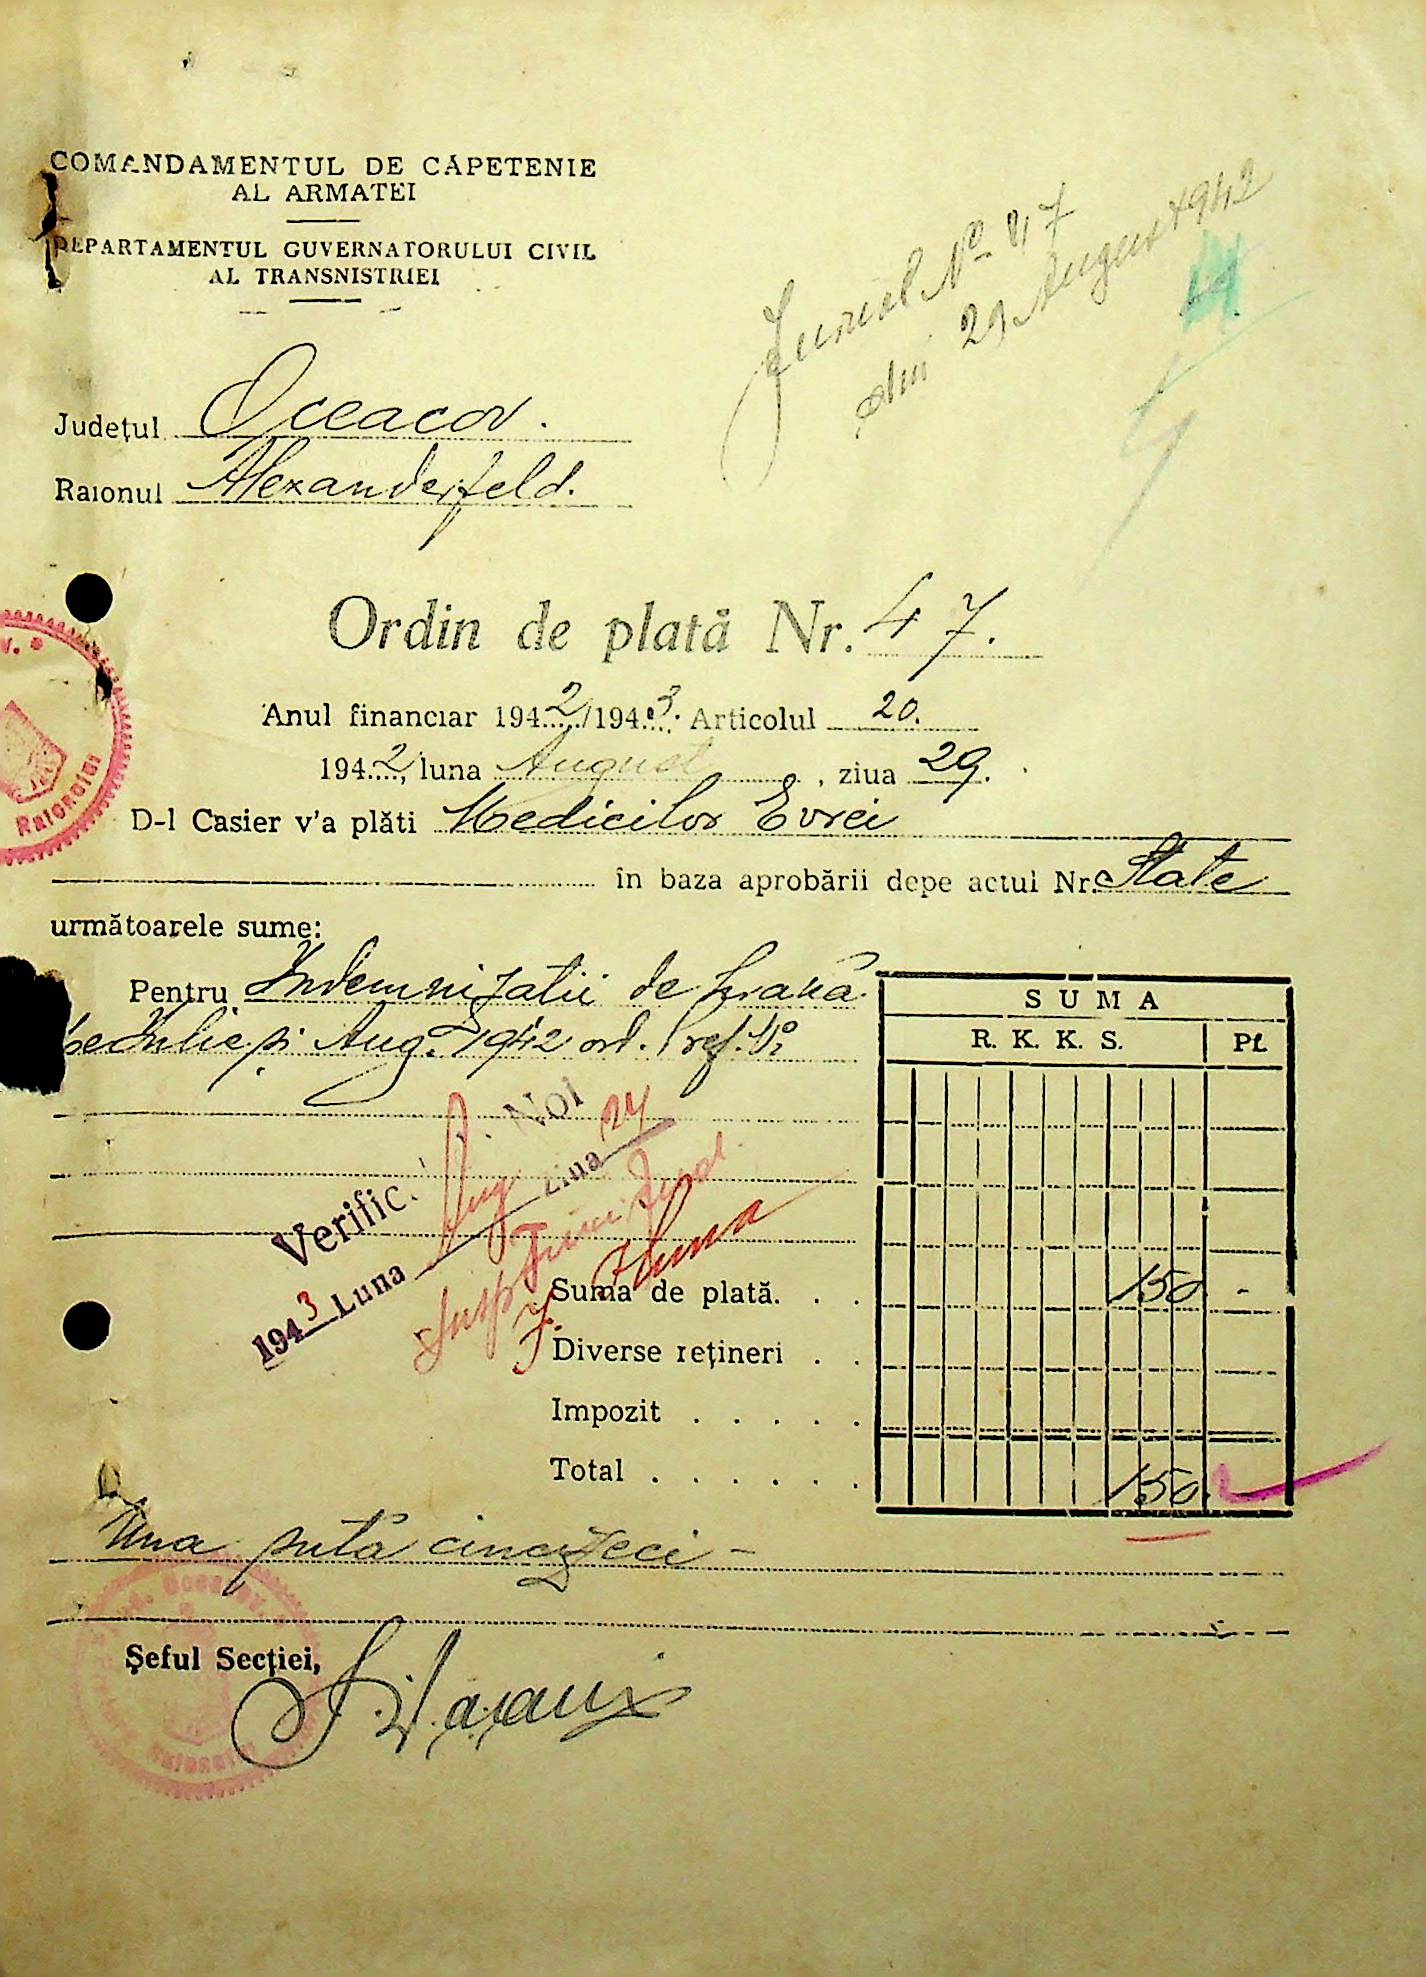 COMANDAMENTUL DE CĂPETENIE
AL ARMATEI
DEPARTAMENTUL GUVERNATORULUI CIVIL
AL TRANSNISTRIEI
Jurnal No 47
din 29 August 1942
Județul Oceacov.
Raionul Alexanderfeld.
Ordin de plată Nr. 47.
Anul financiar 1942/1943. Articolul 20.
1942, luna August, ziua 29.
D-l Casier v'a plăti Medicilor Evrei
în baza aprobării depe actul Nr. State
următoarele sume:
Pentru Indemnizatii de hrană
pe Iulie și Aug. 1942 ord. Pref. No
SUMA
R. K. K. S. Pf.
Verific. Noi
1943 Luna Aug ziua 24
Suma de plată. . . 150 -
Diverse rețineri . .
Impozit . . . . .
Total . . . . . . 150.
Una sută cincizeci -
Șeful Secției,
Raionului